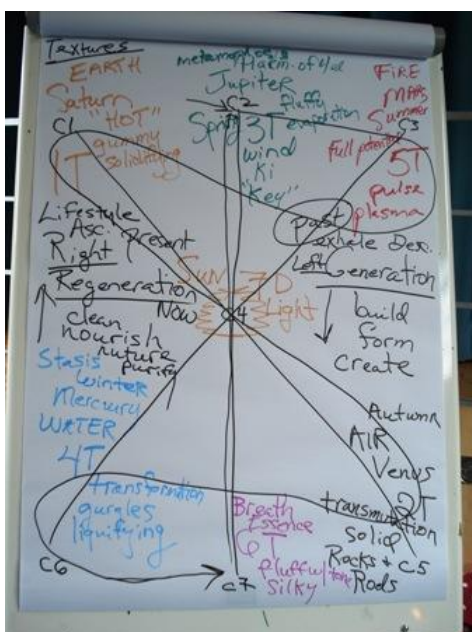 Textures
EARTH
Saturn
"HOT"
gummy
solidifying
C1
1T
metamorphosis
Harm. of
Jupiter
C2
fluffy
Spring
3T
evaporation
wind
Ki
"Key"
FiRE
MARS
Summer
C3
Full potential
5T
pulse
plasma
Lifestyle
Asc. Present
Right
Regeneration
Now
clean
nourish
nuture
purify
Past
exhale Desc.
Left
Generation
build
form
create
Sun 7D
Light
4
Stasis
winter
Mercury
WATER
4T
transformation
gurgles
liquifying
C6
Breath
Essence
6T
fluff w/tone
Silky
C7
Autumn
AIR
Venus
2T
transmutation
Solid
Rocks +
Rods
C5